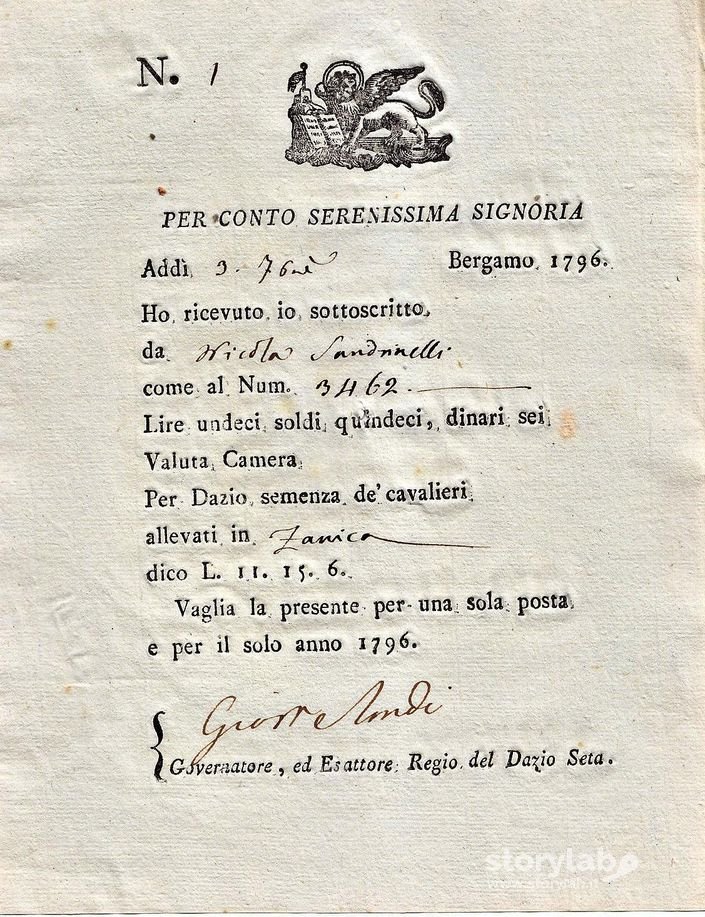 N. 1
PER CONTO SERENISSIMA SIGNORIA
Addì 3. 76rè Bergamo 1796.
Ho ricevuto io sottoscritto,
da Nicola Sandrinelli
come al Num. 3462.
Lire undeci soldi quindeci, dinari sei
Valuta Camera
Per Dazio semenza de' cavalieri
allevati in Zanica
dico L. 11. 15. 6.
Vaglia la presente per una sola posta
e per il solo anno 1796.
Governatore, ed Esattore Regio del Dazio Seta.
storylab
www.storylab.it